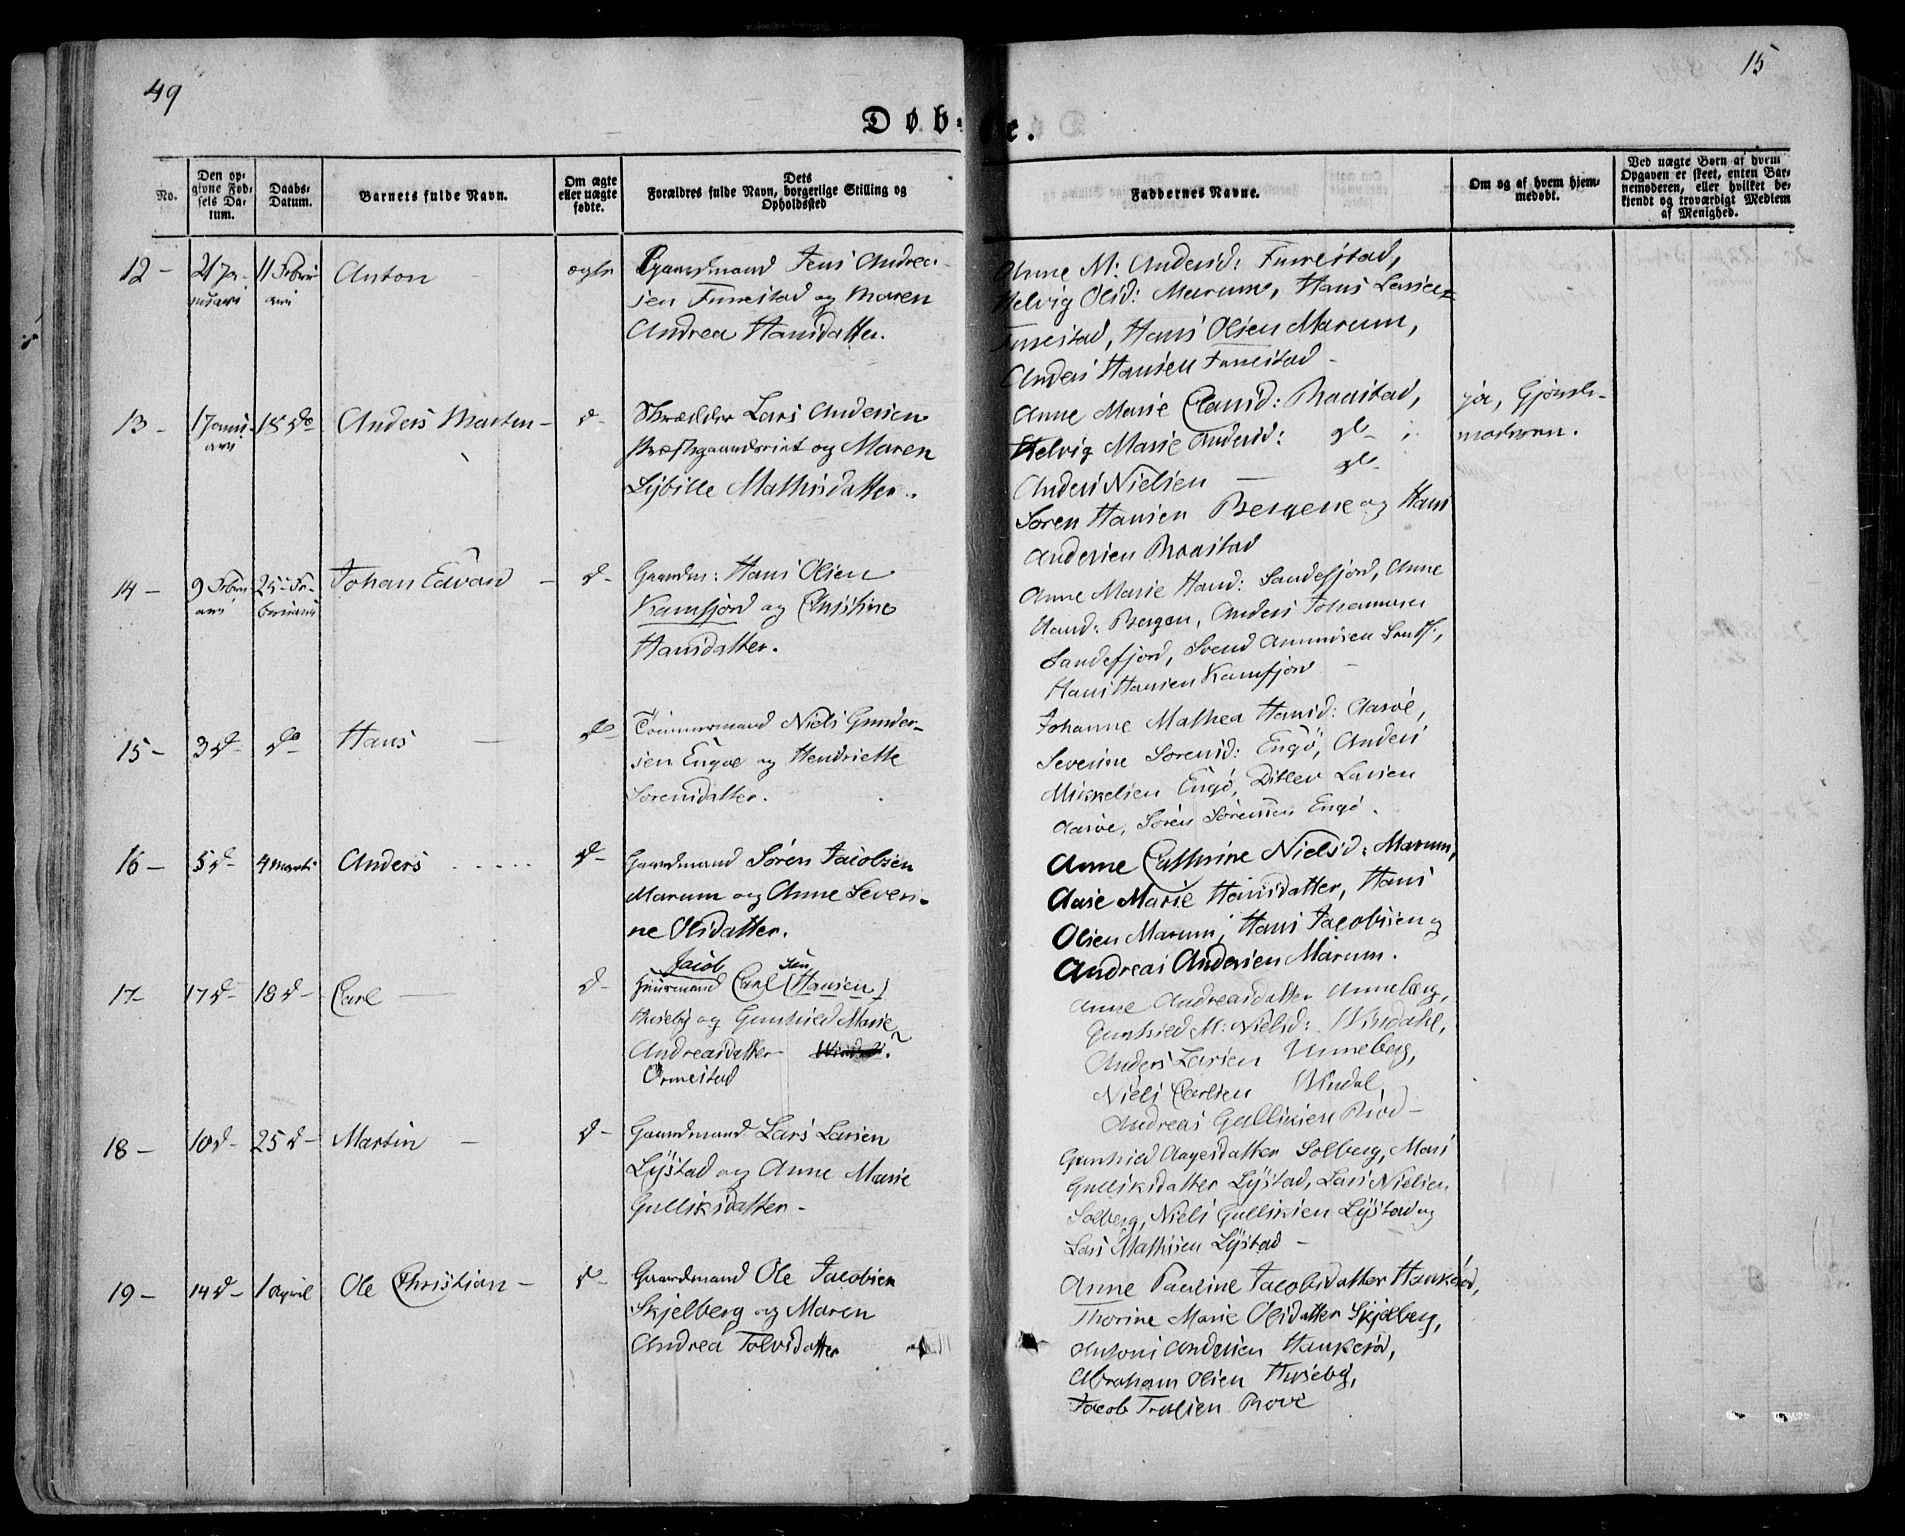 49
15
Døb-te.
No.
Den op-
givne Fød-
sels Da-
tum.
Daabs-
Datum.
Barnets fulde Navn.
Om ægte
eller uægte
fødte.
Dets
Forældres fulde Navn, borgerlige Stilling og
Opholdssted
Faddernes Navne.
Om og af hvem hjem-
medøbt.
Ved uægte Børn af hvem
Opgaven er skeet, enten Bar-
nemoderen, eller hvilket be-
kjendt og troværdigt Medlem
af Menighed.
12 -
21 Ja-
nuari
11 Febru-
ari
Anton
ægte
Gaardmand Jens Andrea-
sen Furestad og Maren
Andrea Hansdatter.
Anne M: Andersd: Furestad,
Helvig Olsd: Marum, Hans Larsen
Furestad, Hans Olsen Marum,
Anders Hansen Furestad -
13 -
1 Janu-
ari
18 do
Anders Morten -
d-
Skrædder Lars Andersen
Præstegaardseiet og Maren
Sybille Mathisdatter.
Anne Marie Clausd: Raastad,
Helvig Marie Andersd:
Anders Nielsen
Søren Hansen Bergene og Hans
Andersen Raastad
ja, Gjords-
moderen.
14 -
9 Febru-
ari
25 Fe-
bruari
Johan Edvard -
d-
Gaardm: Hans Olsen
Kamfjord og Christine
Hansdatter.
Anne Marie Hansd: Sandefjord, Anne
Hansd: Bergan, Anders Johannesen
Sandefjord, Svend Amundsen Sandf:,
Hans Hansen Kamfjord -
15 -
3 d-
do
Hans
do
Tømmermand Niels Gunder-
sen Engøe og Hendriette
Sørensdatter.
Johanne Mathea Hansd: Aasøe,
Severine Sorensd: Engø, Anders
Mikkelsen Engø, Ditlev Larsen
Aasøe, Søren Sørensen Engø.
16 -
5 d-
4 Marti
Anders
d-
Gaardmand Søren Jacobsen
Marum og Anne Severi-
ne Olsdatter.
Anne Cathrine Nielsd: Marum,
Aase Marie Hansdatter, Hans
Olsen Marum, Hans Jacobsen og
Andreas Andersen Marum.
17 -
17 d-
18 d-
Carl
d-
Jacob
Huusmand Carl (Hansen)
Huseby og Gunhild Marie
Andreasdatter
Ormestad
Anne Andreasdatter Unneberg,
Gunhild M: Nielsd: Vindahl,
Anders Larsen Unneberg,
Niels Carlsen Vindal,
Andreas Gulliksen Riød -
18 -
10 d-
25 d-
Martin -
d-
Gaardmand Lars Larsen
Lÿstad og Anne Marie
Gulliksdatter -
Gunhild Aagesdatter Solberg, Mari
Gulliksdatter Lÿstad, Lars Nielsen
Solberg, Niels Gulliksen Lÿstad og
Lars Mathisen Lÿstad -
19 -
14 d-
1 April
Ole Christian -
d-
Gaardmand Ole Jacobsen
Skjelberg og Maren
Andrea Tolvsdatter
Anne Pauline Jacobsdatter Haukerød,
Thorine Marie Olsdatter Skjelberg,
Antoni Andersen Haukerød,
Abraham Olsen Huseby,
Jacob Trulsen Rove